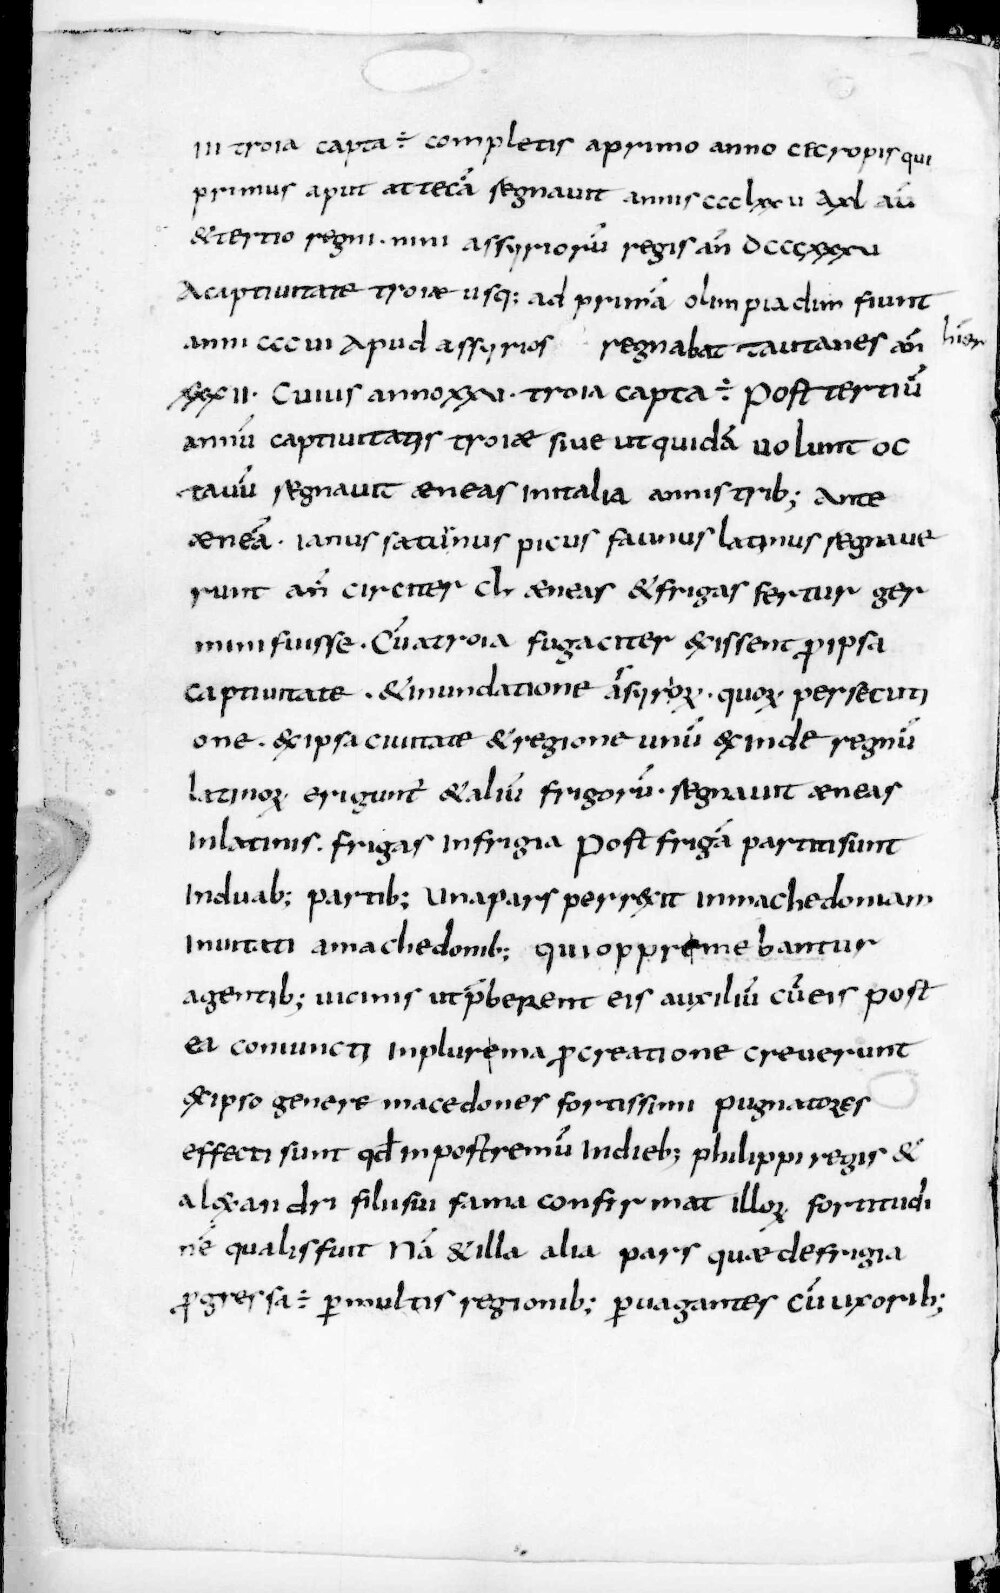 III troia capta ÷ completis aprimo anno cecropis qui
primus aput attecā regnauit annis ccclxxv Axl aū
&tertio regni · nini assyriorū regis añ Dcccxxxv
Acaptiuitate troiæ usq; ad primā olimpiadim fiunt
anni cccvi Apud assyrios regnabat tautanes añ
xxxII · Cuius anno xxvi · troia capta ÷ Post tertiū
annū captiuitatis troiæ siue ut quidā uolunt oc
tauū regnauit æneas initalia annis trib; Ante
æneā · ianus saturnus picus faunus latinus regnaue
runt añ circiter cl æneas &frigas fertur ger
mini fuisse · Cūatroia fugaciter exissent ꝓipsa
captiuitate · &inundatione āsyroꝝ · quoꝝ persecuti
one · exipsa ciuitate &regione unū exinde regnū
latinoꝝ erigunt &aliū frigorū · regnauit æneas
Inlatinis · frigas Infrigia Post frigā partiti sunt
Induab; partib; Unapars perrexit inmachedoniam
Inuitati amachedonib; qui oppremebantur
agentib; uicinis utp̄berent eis auxiliū cūeis post
ea coniuncti Inplurema ꝓcreatione creuerunt
exipso genere macedones fortissimi pugnatores
effecti sunt qđ inpostremū Indieb; philippi regis &
alexandri filiisui fama confirmat illoꝝ fortitudi
nē qualis fuit Nā &illa alia pars quæ defrigia
ꝓgressa ÷ ꝑmultis regionib; ꝑuagantes cūuxorib;